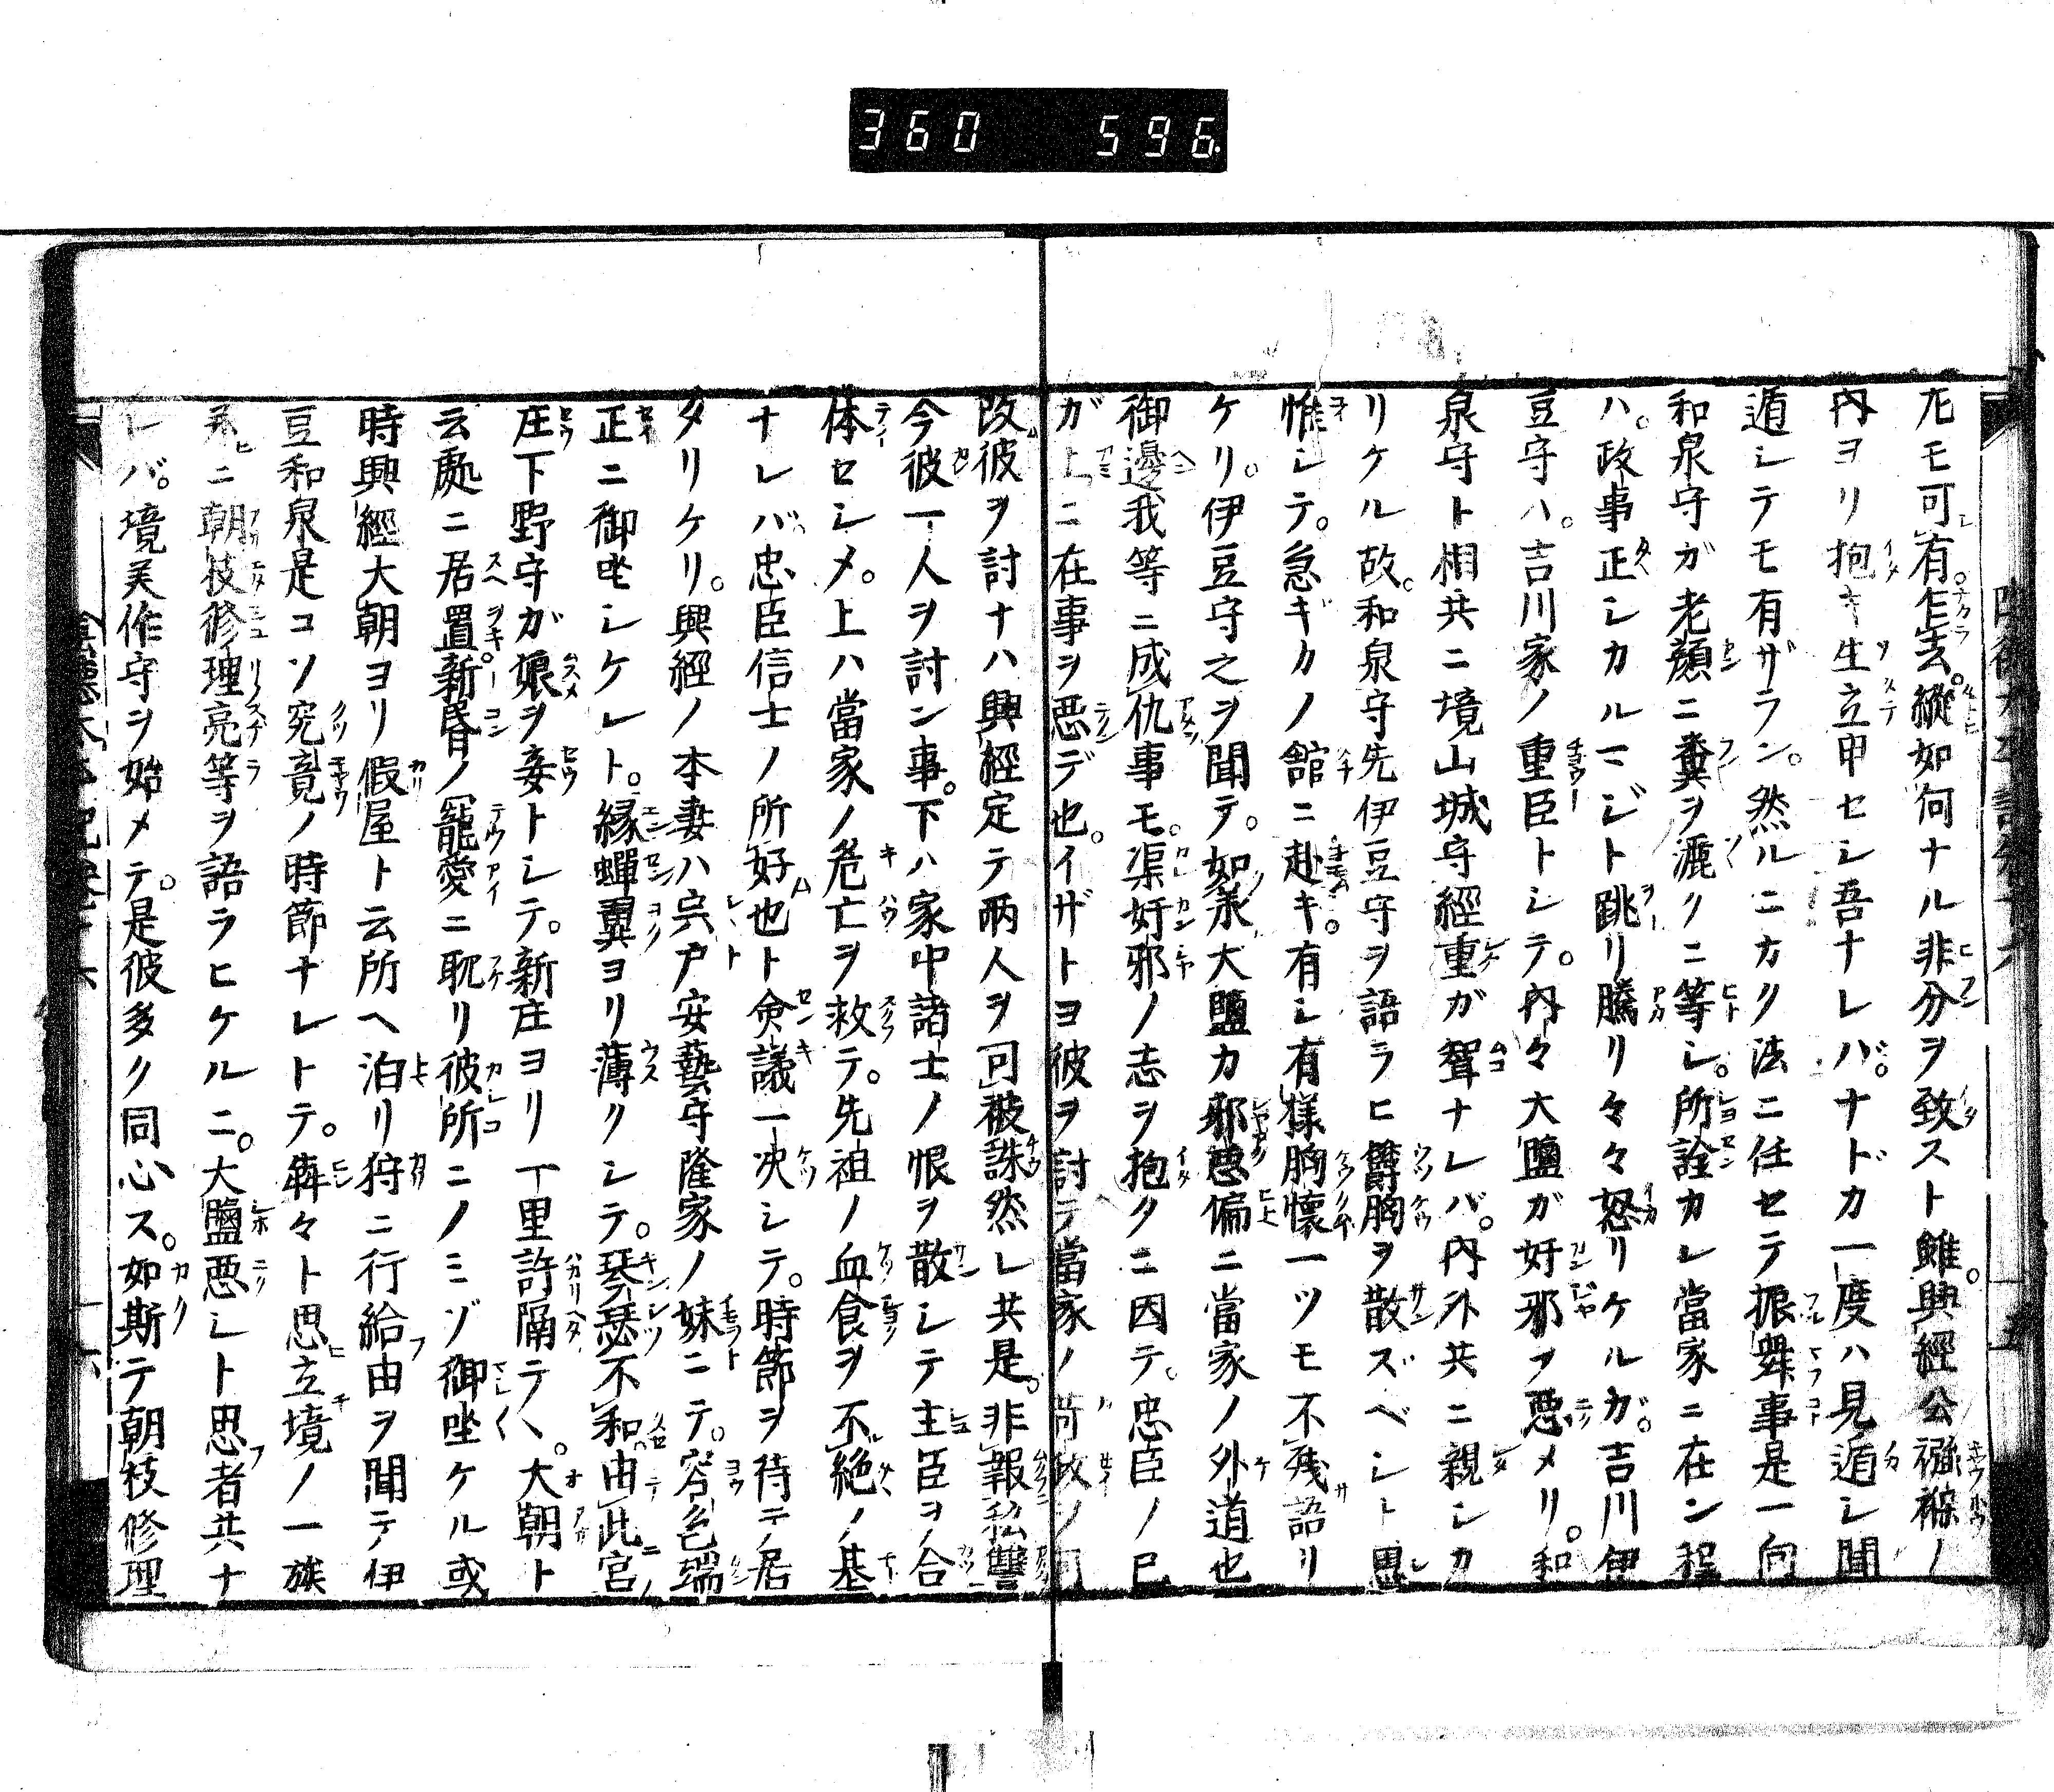 360 596
尤モ可有。乍去。縱如何ナル非分ヲ致スト雖。興經公襁褓ノ
內ヨリ抱キ生立申セシ吾ナレバ。ナドカ一度ハ見遁シ聞
遁シテモ有ザラン。然ルニカク法ニ任セテ振舞事是一向
和泉守ガ老顔ニ糞ヲ漉クニ等シ。所詮カレ當家ニ在ン程
ハ。政事正シカルマジト跳リ騰リ々々怒リケルガ。吉川伊
豆守ハ。吉川家ノ重臣トシテ。內々大鹽ガ奸邪ヲ惡メリ。和
泉守ト相共ニ境山城守經重ガ聟ナレバ。內外共ニ親シカ
リケル故。和泉守先伊豆守ヲ語ラヒ欝胸ヲ散ズベシト思
惟シテ。急ギカノ舘ニ赴キ。有シ有樣胸懷一ツモ不殘語リ
ケリ。伊豆守之ヲ聞テ。如來大鹽カ邪惡偏ニ當家ノ外道也
御邊我等ニ成仇事モ。渠奸邪ノ志ヲ抱クニ因テ。忠臣ノ己
ガ上ニ在事ヲ惡デ也。イザトヨ彼ヲ討テ當家ノ苛政ノ
改彼ヲ討ナハ興經定テ兩人ヲ可被誅然レ共是。非報私讐
今彼一人ヲ討ン事。下ハ家中諸士ノ恨ヲ散シテ主臣ヲ合
体セシメ。上ハ當家ノ危亡ヲ救テ。先祖ノ血食ヲ不絶ノ基
ナレバ忠臣信士ノ所好也ト僉議一决シテ。時節ヲ待テノ居
タリケリ。興經ノ本妻ハ宍戸安藝守隆家ノ妹ニテ。容色端
正ニ御坐シケレト。緣蟬翼ヨリ薄クシテ。琴瑟不和由此宮
庄下野守ガ娘ヲ妾トシテ。新庄ヨリ一里許隔テヽ。大朝ト
云處ニ居置。新昏ノ寵愛ニ耽リ彼所ニノミゾ御坐ケル或
時興經大朝ヨリ假屋ト云所ヘ泊リ狩ニ行給由ヲ聞テ伊
豆和泉是コソ究竟ノ時節ナレトテ。犇々ト思立境ノ一族
幷ニ朝枝修理亮等ヲ語ラヒケルニ。大鹽惡シト思者共ナ
レバ。境美作守ヲ始メテ。是彼多ク同心ス。如斯テ朝枝修理